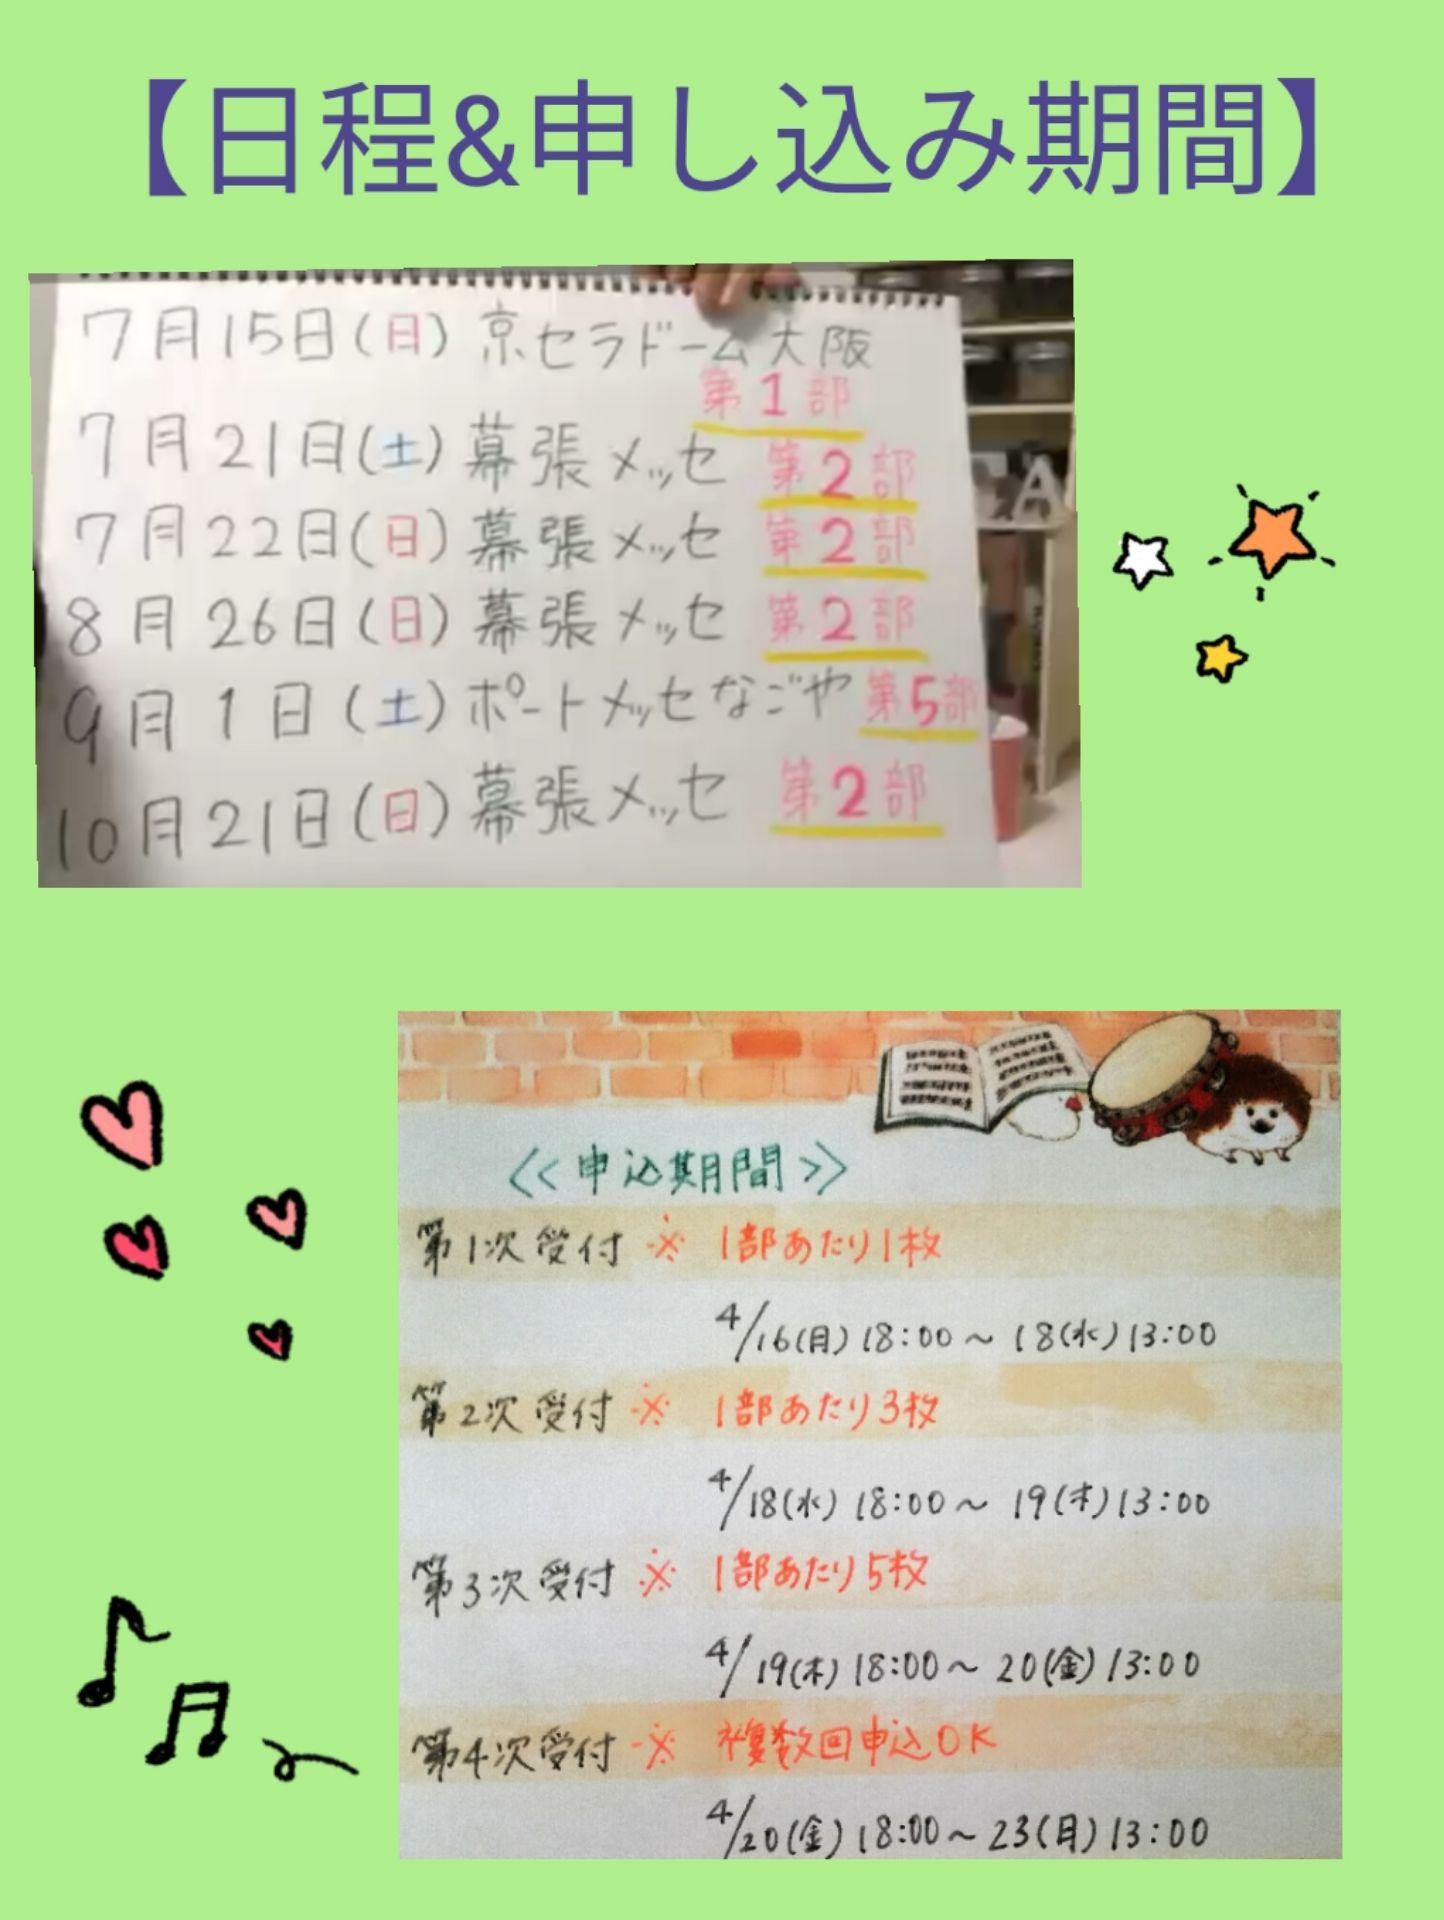 【日程&申し込み期間】
7月15日(日) 京セラドーム大阪
第1部
7月21日(土) 幕張メッセ 第2部
7月22日(日) 幕張メッセ 第2部
8月26日(日) 幕張メッセ 第2部
9月1日(土) ポートメッセなごや 第5部
10月21日(日) 幕張メッセ 第2部
A
<<申込期間>>
第1次受付 ※ 1部あたり1枚
4/16(月) 18:00～18(水) 13:00
第2次受付 ※ 1部あたり3枚
4/18(水) 18:00～19(木) 13:00
第3次受付 ※ 1部あたり5枚
4/19(木) 18:00～20(金) 13:00
第4次受付 ※ 複数回申込OK
4/20(金) 18:00～23(月) 13:00